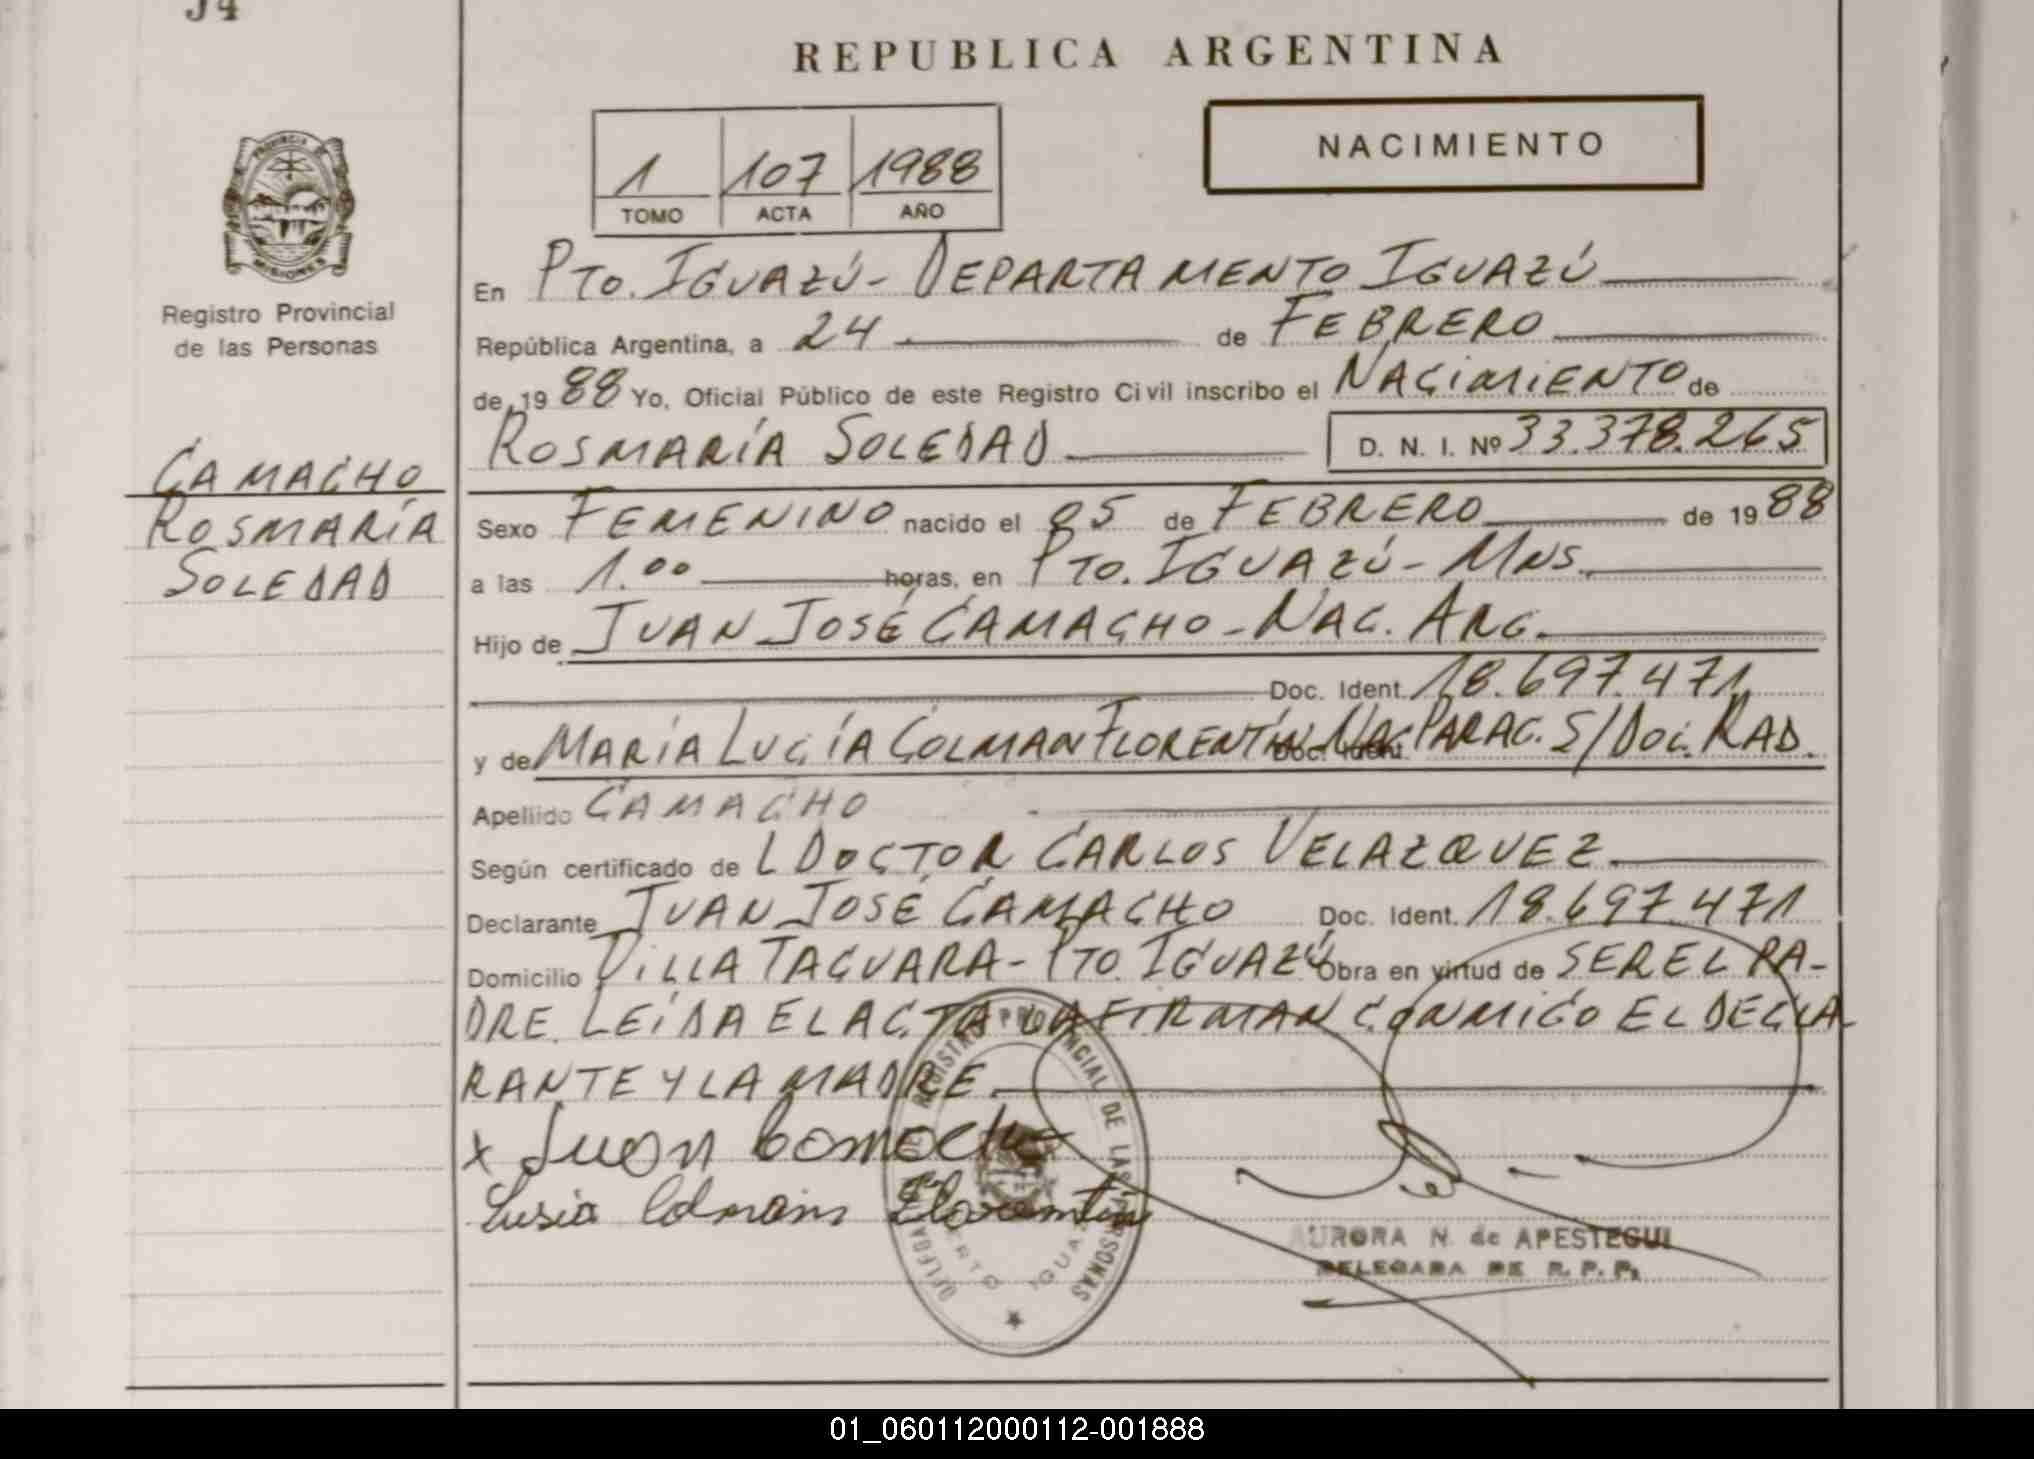 34
REPUBLICA ARGENTINA
NACIMIENTO
1 107 1988
TOMO ACTA AÑO
PROVINCIA DE
MISIONES
Registro Provincial
de las Personas
CAMACHO
ROSMARÍA
SOLEDAD
En PTO. IGUAZÚ - DEPARTAMENTO IGUAZÚ
República Argentina, a 24 de FEBRERO
de 1988 Yo, Oficial Público de este Registro Civil inscribo el NACIMIENTO de
ROSMARÍA SOLEDAD D. N. I. Nº 33.378.265
Sexo FEMENINO nacido el 05 de FEBRERO de 1988
a las 1.00 horas, en PTO. IGUAZÚ - MNS.
Hijo de JUAN JOSÉ CAMACHO - NAC. ARG.
Doc. Ident. 18.697.471
y de MARÍA LUCÍA COLMAN FLORENTÍN NAC PARAG. S/DOC. RAD.
Apellido CAMACHO
Según certificado de L DOCTOR CARLOS VELAZQUEZ
Declarante JUAN JOSÉ CAMACHO Doc. Ident. 18.697.471
Domicilio VILLA TACUARA - PTO. IGUAZÚ Obra en virtud de SER EL PA-
DRE. LEÍDA EL ACTA LA FIRMAN CONMIGO EL DECLA-
RANTE Y LA MADRE.
x Juan Camacho
Lusia Colmain Florentin
DELEGACION DE REGISTRO PROVINCIAL DE LAS PERSONAS
PUERTO IGUAZU
AURORA N. de APESTEGUI
DELEGADA DE R. P. P.
01_060112000112-001888